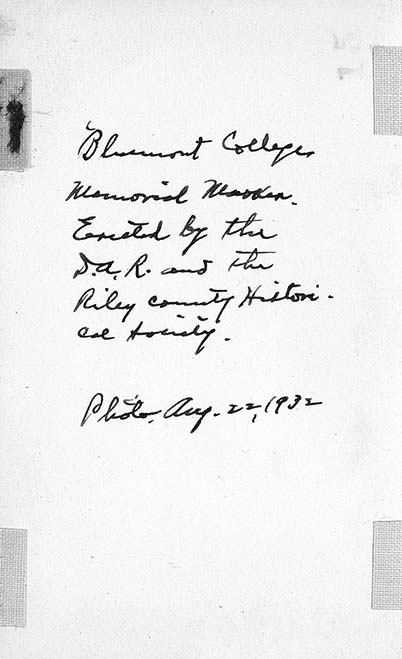 Bluemont College
Memorial Marker.
Erected by the
D.A.R. and the
Riley county Histori-
cal Society.
Photo, Aug. 22, 1932